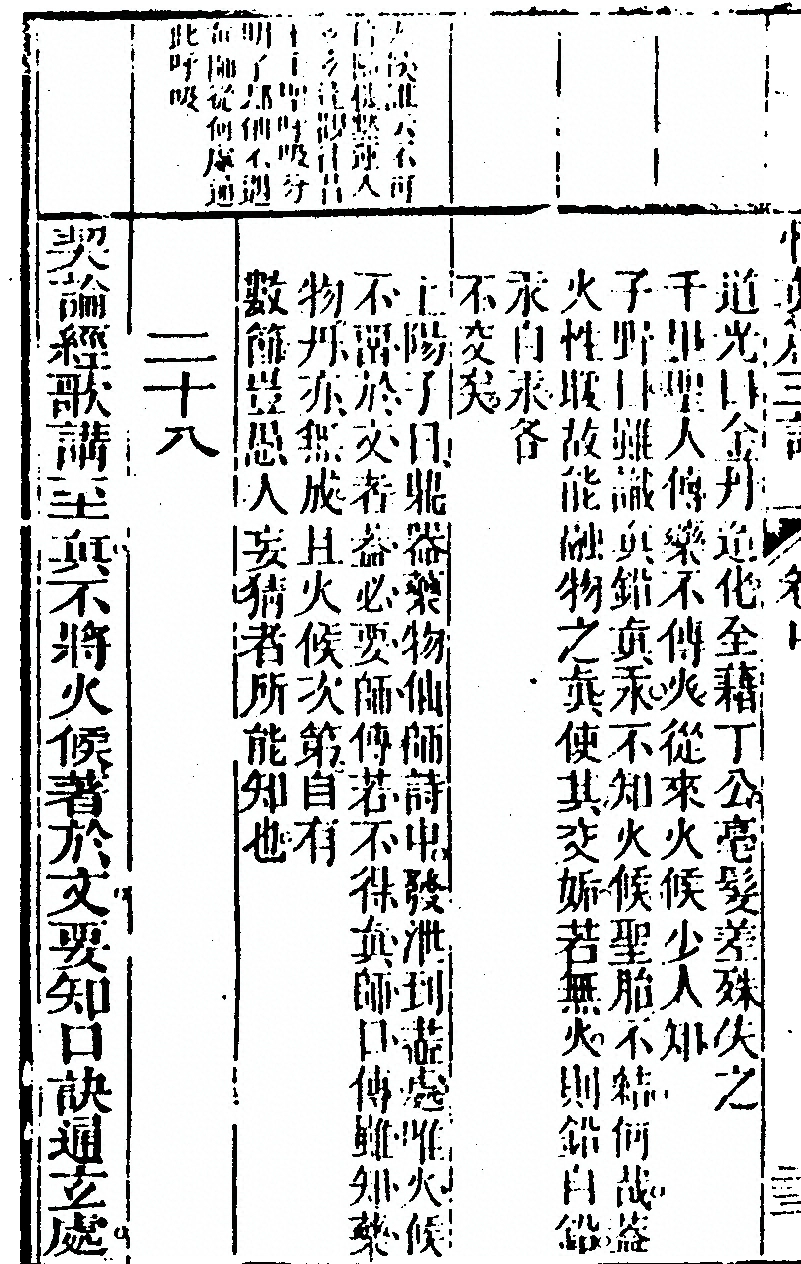 三註
道光曰金丹造化全藉丁公毫髮差殊失之
千里聖人傳藥不傳火從來火候少人知
子野曰雖識真鉛真汞不知火候聖胎不結何哉蓋
火性暖故能融物之真使其交姤若無火則鉛自鉛
汞自汞各
不交矣
不可
人
呼吸
明了
師從何處通
此呼吸
上陽子曰鼎器藥物仙師詩中發泄到盡處唯火候
不留於文者蓋必要師傳若不得真師口傳雖知藥
物丹亦無成且火候次第自有
數節豈愚人妄猜者所能知也
二十八
契論經歌講至真不將火候著於文要知口訣通玄處